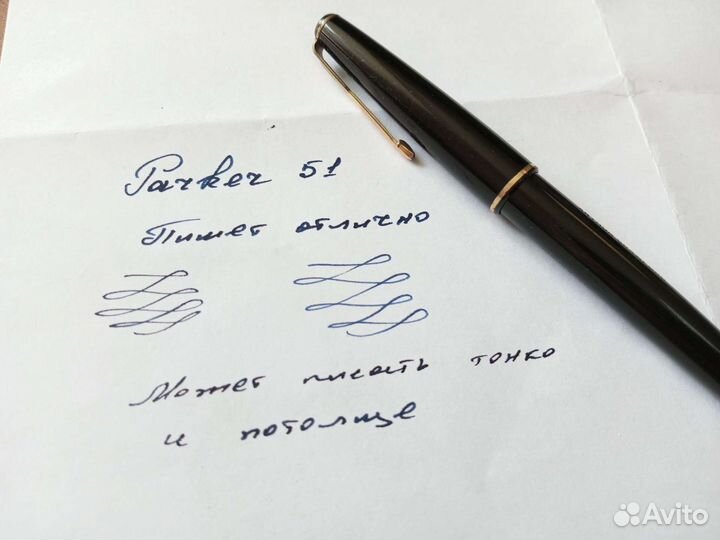 Parker 51
Пишет отлично
Может писать тонко
и потолще
Avito